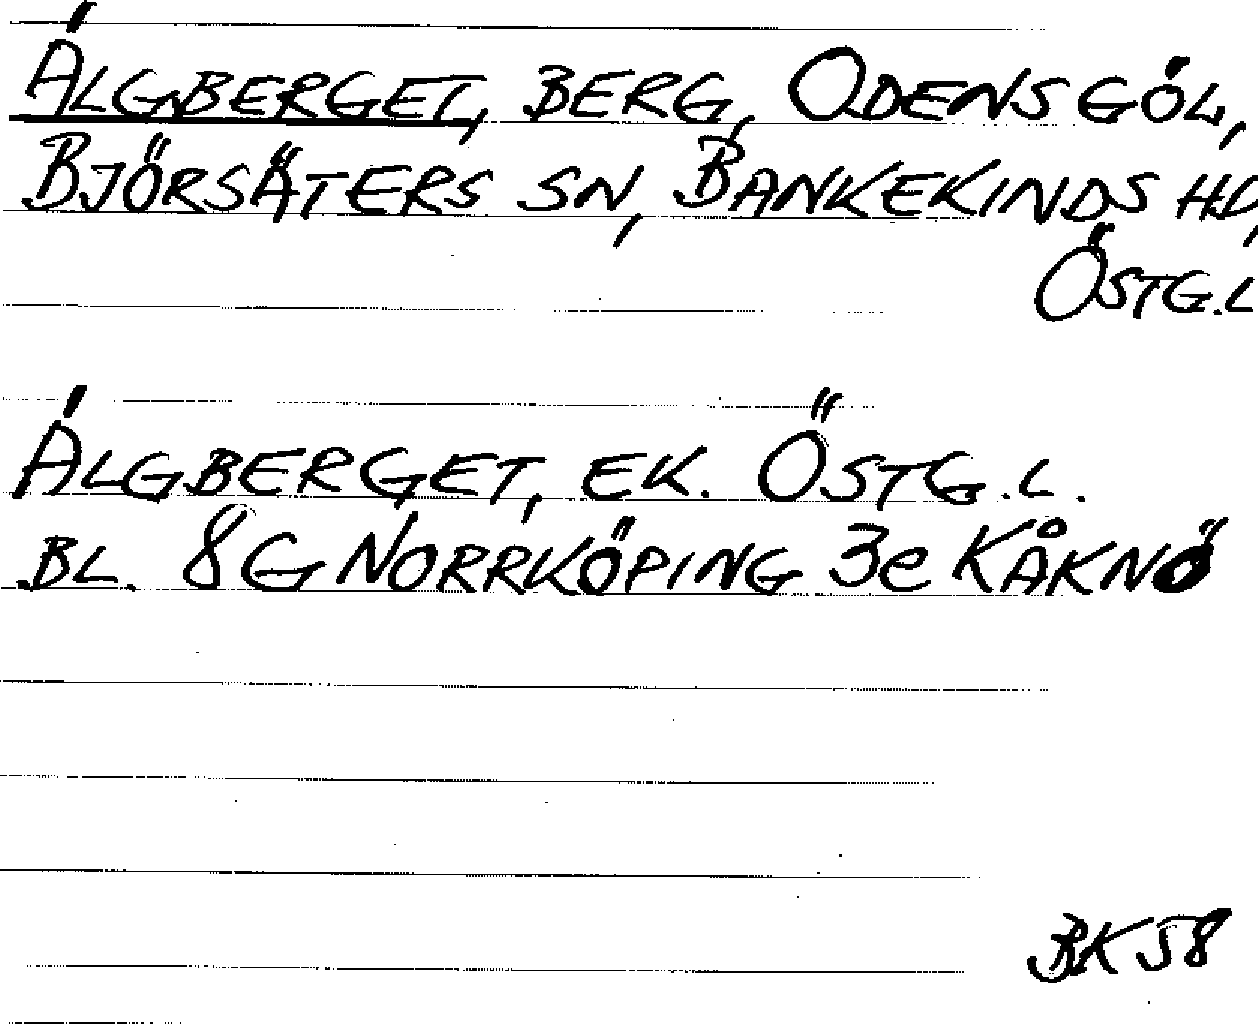 ÄLGBERGET, BERG, ODENSGÖL,
BJÖRSÄTERS SN, BANKEKINDS HD,
ÖSTG.L
ÄLGBERGET, EK. ÖSTG.L.
BL. 8G NORRKÖPING 3e KÅKNÖ
BK 58